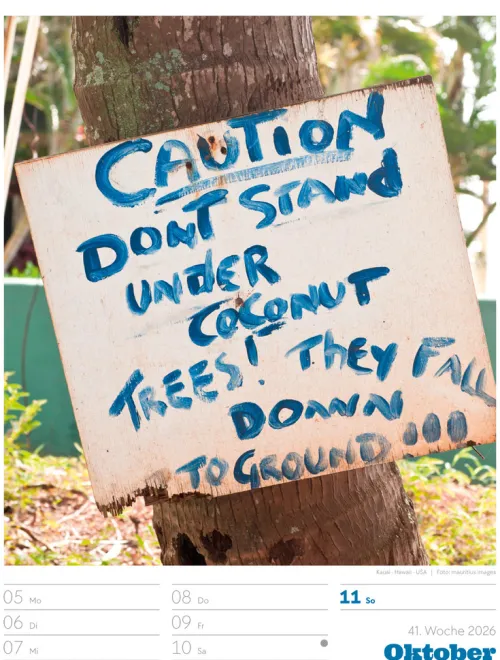 CAUTION
DONT STAND
UNDER
COCONUT
TREES! THEY FALL
DOWN
TO GROUND !!!
Kauai · Hawaii · USA | Foto: mauritius images
05 Mo
08 Do
11 So
06 Di
09 Fr
07 Mi
10 Sa
41. Woche 2026
Oktober